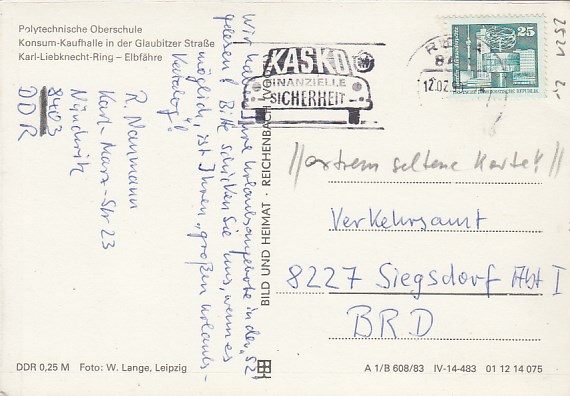 Polytechnische Oberschule
Konsum-Kaufhalle in der Glaubitzer Straße
Karl-Liebknecht-Ring – Elbfähre
Wir haben Ihre Urlaubsangebote in der „SZ“
gelesen! Bitte schicken Sie uns, wenn es
möglich, ist Ihren „großen Urlaubs-
Katalog“!
R. Naumann
Karl-Marx-Str 23
Nünchritz
8403
DDR
BILD UND HEIMAT · REICHENBACH
KASKO
FINANZIELLE
SICHERHEIT
12.02.
25
DEUTSCHE DEMOKRATISCHE REPUBLIK
2521 2,-
//extrem seltene Karte!//
Verkehrsamt
8227 Siegsdorf Abt I
BRD
DDR 0,25 M Foto: W. Lange, Leipzig
A 1/B 608/83 IV-14-483 01 12 14 075